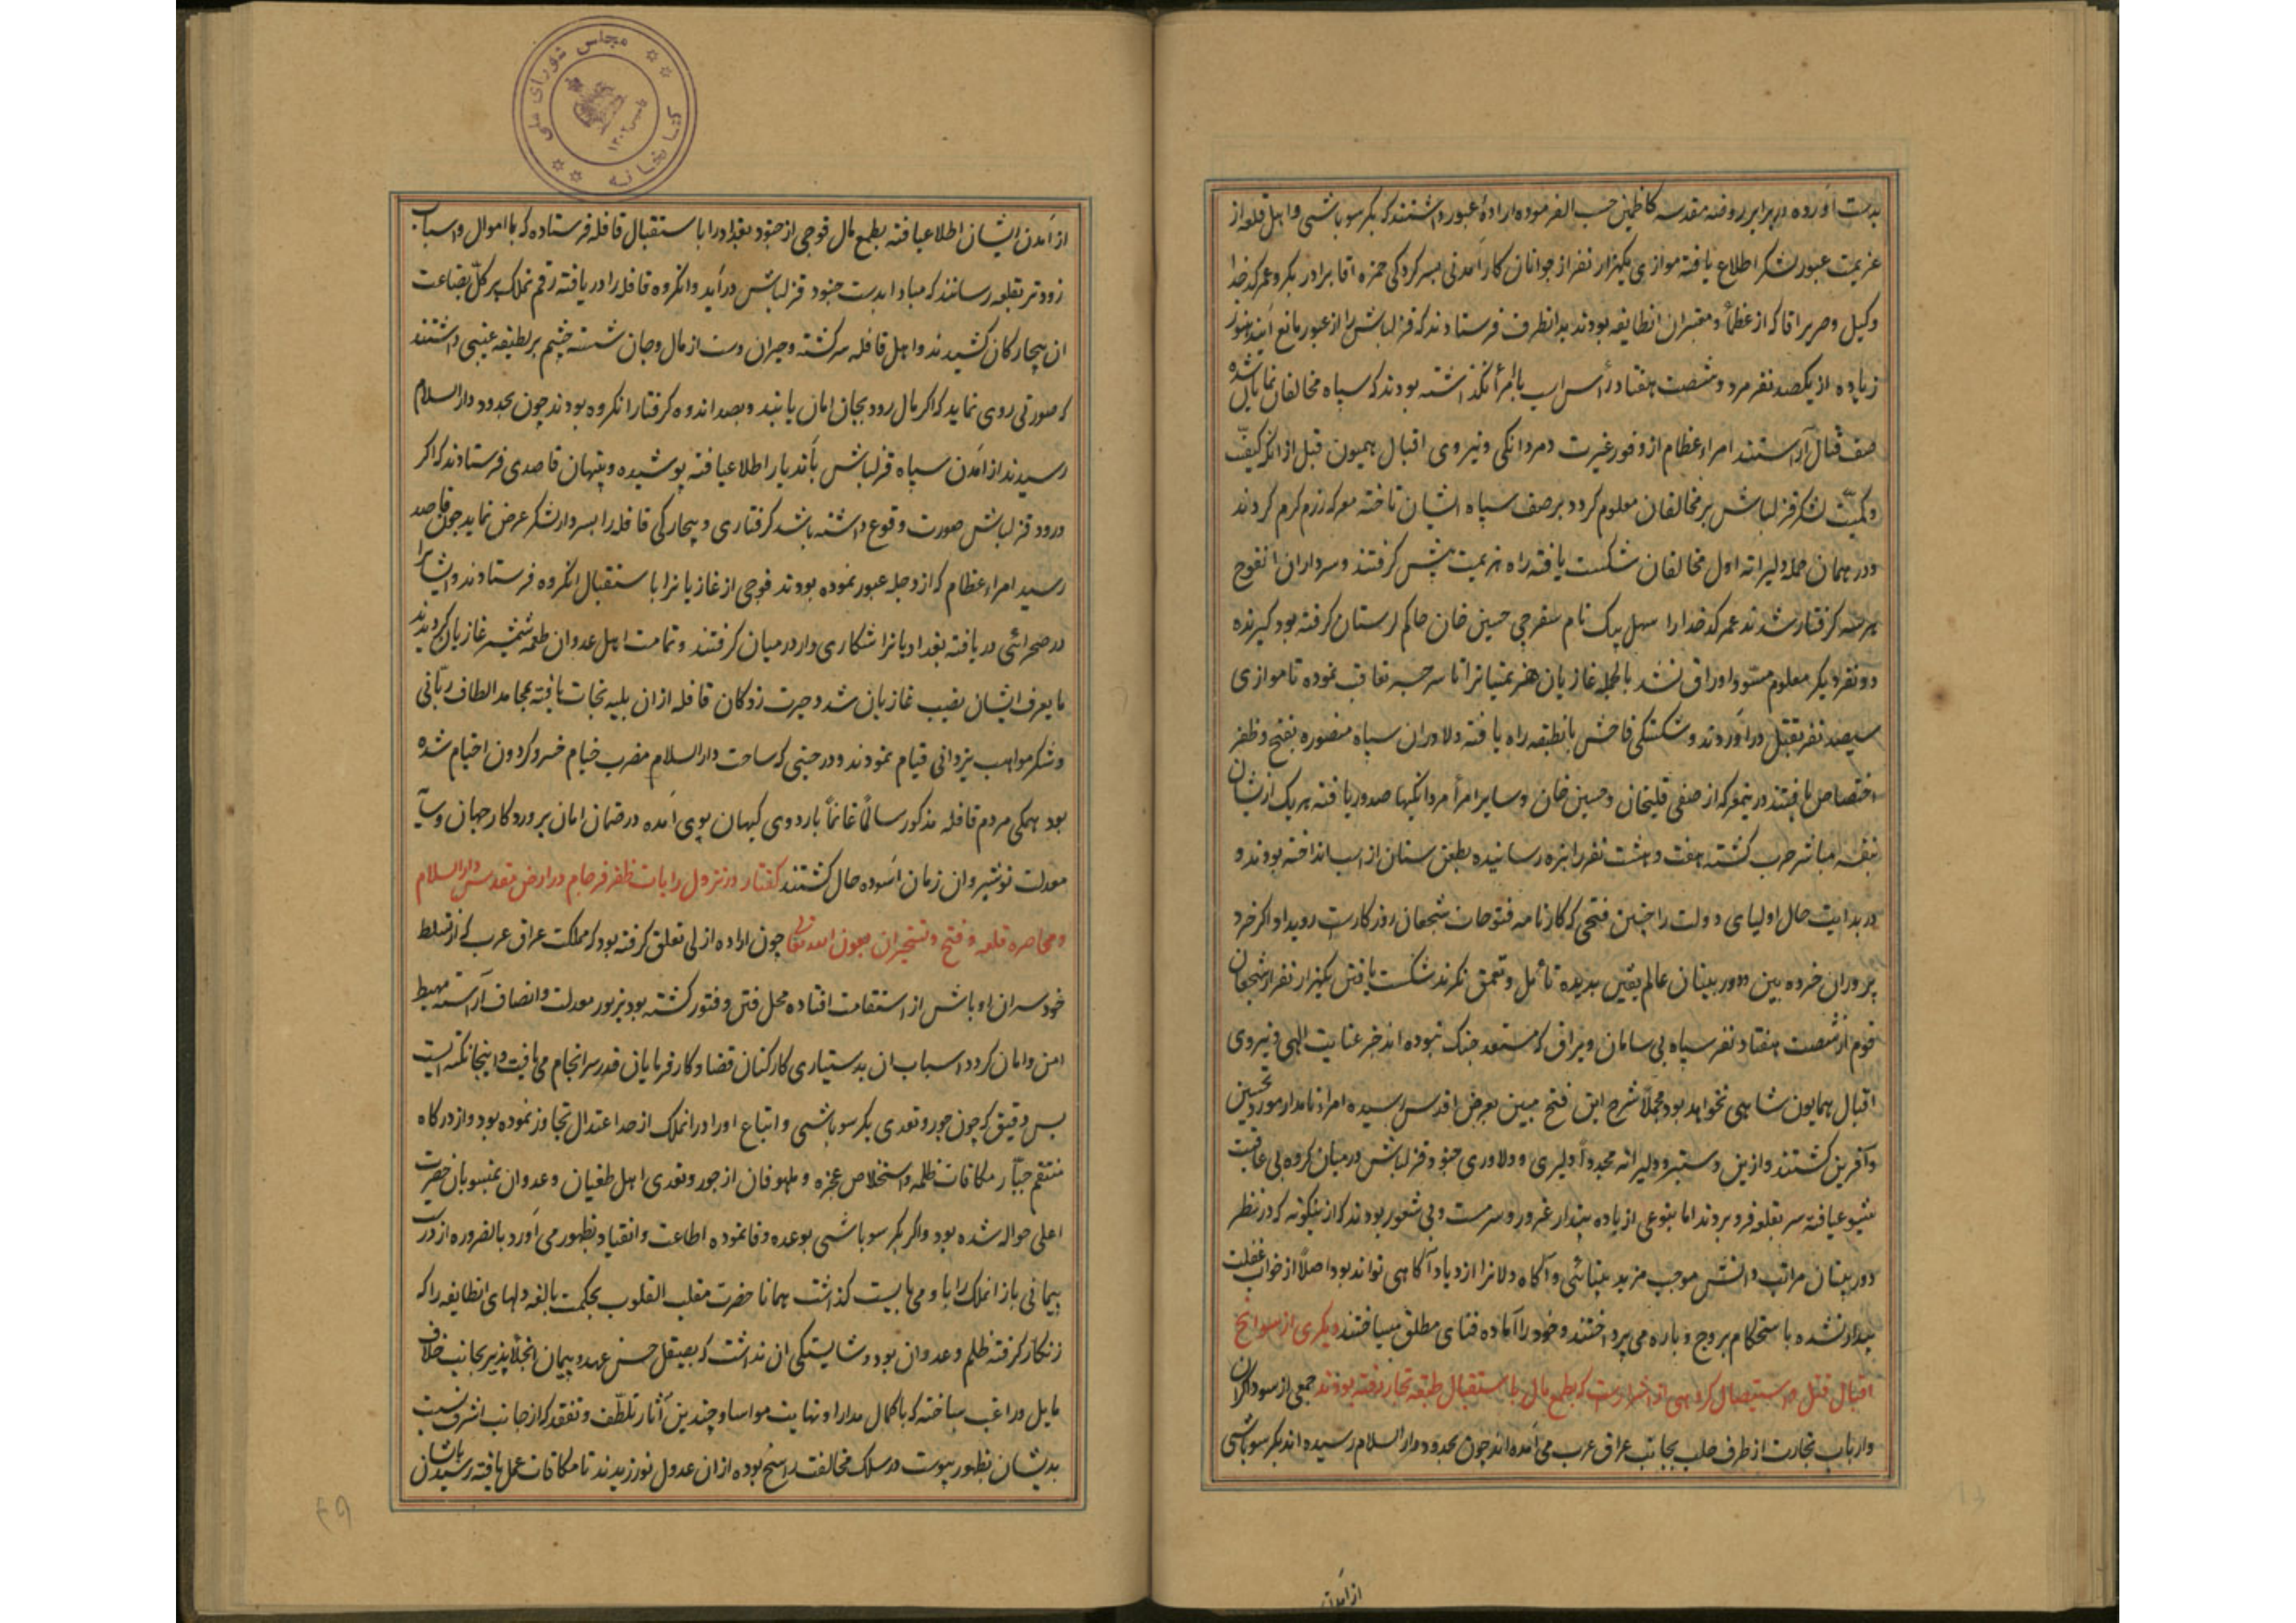 بدست آورده در برابر روضه مقدسه کاظمین حسب الفرموده اراده عبور داشتند که بکر سوباشی و اهل قلعه از
عزیمت عبور لشکر اطلاع یافته موازی یکهزار نفر از جوانان کارآمدنی بسرکردگی حمزه آقا برادر بکر و عمر کدخدا
وکیل و صریر آقا که از عظما و معتبران انطایفه بودند بدانطرف فرستادند که قزلباش را از عبور مانع آیند هنوز
زیاده از یکصد نفر مرد و شصت هفتاد رأس اسب با امرا نگذاشته بودند که سپاه مخالفان نمایان شده
صف قتال آراستند امراء عظام از وفور غیرت و مردانکی و نیروی اقبال همیون قبل از انکه کیفیّت
و کمیّت لشکر قزلباش بر مخالفان معلوم کردد بر صف سپاه ایشان تاخته معرکه رزم کرم کردند
و در همان حمله دلیرانه اول مخالفان شکست یافته راه هزیمت پیش کرفتند و سرداران انفوج
هر سه کرفتار شدند عمر کدخدا را سهل بیک نام سفرچی حسین خان حاکم لرستان کرفته بود کیرنده
دو نفر دیکر معلوم مسوّد اوراق نشد بالجمله غازیان هزیمتیانرا تا سر جسر تعاقب نموده تا موازی
سیصد نفر بقتل درآوردند و شکستکی فاحش بانطبقه راه یافته دلاوران سپاه منصوره بفتح و ظفر
اختصاص یافتند در ینمعرکه از صفی قلیخان و حسین خان و سایر امرا مردانکیها صدور یافته هر یک از یشان
بنفسه مباشر حرب کشته هفت و هشت نفر را بنیزه رسانیده بطعن سنان از اسب انداخته بودند و
در بدایت حال اولیای دولت را چنین فتحی که کارنامه فتوحات شجعان روزکارست رویداد اکر خرد
پروران خرده بین و دور بینان عالم یقین بدیده تأمل و تعمق نکرند شکست یافتن یکهزار نفر از شجعان
قوم از شصت هفتاد نفر سپاه بی سامان و یراق که مستعد جنک نبوده اند جز عنایت الهی و نیروی
اقبال همایون شاهی نخواهد بود مجملا شرح این فتح مبین بعرض اقدس رسیده امراء نامدار مورد تحسین
و آفرین کشتند و ازین دستبرد دلیرانه مجدداً دلیری و دلاوری جنود قزلباش در میان کروه بی عاقبت
شیوع یافته سر بقلعه فرو بردند اما بنوعی از باده پندار غرور و سرمست و بی شعور بودند که از ینکونه که در نظر
دور بینان مراتب دانش موجب مزید بینائی و آکاه دلانرا ازدیاد آکاهی تواند بود اصلا از خواب غفلت
بیدار نشده باستحکام بروج و باره می پرداختند و خود را آماده فنای مطلق میساختند دیکری از سوانح
اقبال قتل و استیصال کروهی از اشرارست که بطمع مال باستقبال طبقه تجار رفته بودند جمعی از سوداکران
و ارباب تجارت از طرف حلب بجانب عراق عرب می آمده اند چون بحدود دار السلام رسیده اند بکر سوباشی
از آمدن
از آمدن ایشان اطلاع یافته بطمع مال فوجی از جنود بغداد را باستقبال قافله فرستاده که با اموال و اسباب
زودتر بقلعه رسانند که مبادا بدست جنود قزلباش درآید و انکروه قافله را دریافته رقم تملک بر کل بضاعت
ان بیچارکان کشیدند و اهل قافله سرکشته و حیران دست از مال و جان شسته چشم بر لطیفه غیبی داشتند
که صورتی روی نماید که اکر مال رود بجان امان یابند و بصد اندوه کرفتار انکروه بودند چون بحدود دار السلام
رسیدند از آمدن سپاه قزلباش بآندیار اطلاع یافته پوشیده و پنهان قاصدی فرستادند که اکر
ورود قزلباش صورت وقوع داشته باشد کرفتاری و بیچارکی قافله را بسردار لشکر عرض نماید چون قاصد
رسید امراء عظام که از دجله عبور نموده بودند فوجی از غازیانرا باستقبال انکروه فرستادند و ایشانرا
در صحرائی دریافته بغدادیانرا شکاری وار در میان کرفتند و تمامت اهل عدوان طعمه شمشیر غازیان کردیدند
ما یعرف ایشان نصیب غازیان شد و حیرت زدکان قافله از ان بلیه نجات یافته بمحامد الطاف ربّانی
و شکر مواهب یزدانی قیام نمودند و در حینی که ساحت دار السلام مضرب خیام خسرو کردون احتشام شده
بود همکی مردم قافله مذکور سالماً غانماً باردوی کیهان پوی آمده در ضمان امان پروردکار جهان و سایه
معدلت نوشیروان زمان آسوده حال کشتند کفتار در نزول رایات ظفر فرجام در ارض مقدس دار السلام
و محاصره قلعه و فتح و تسخیر ان بعون الله تعالی چون اراده ازلی تعلق کرفته بود که مملکت عراق عرب که از تسلط
خودسران اوباش از استقامت افتاده محل فتن و فتور کشته بود بزیور معدلت و انصاف آراسته مهبط
امن و امان کردد اسباب ان بدستیاری کارکنان قضا و کارفرمایان قدر سرانجام می یافت و اینجا نکته ایست
بس دقیق که چون جور و تعدی بکر سوباشی و اتباع او را در انملک از حد اعتدال تجاوز نموده بود و از درکاه
منتقم جبّار مکافات ظلمه و استخلاص عجزه و ملهوفان از جور و تعدی اهل طغیان و عدوان بمنسوبان حضرت
اعلی حواله شده بود و اکر بکر سوباشی بوعده وفا نموده اطاعت و انقیاد بظهور می آورد بالضروره از در
پیمانی باز انملک را باو می بایست کذاشت همانا حضرت مقلب القلوب بحکمت بالغه دلهای انطایفه را که
زنکار کرفته ظلم و عدوان بود و شایستکی ان نداشت که بصیقل حسن عهد و پیمان انجلا پذیر بجانب خلاف
مایل و راغب ساخته که با کمال مدارا و نهایت مواسا و چندین آثار تلطّف و تفقد که از جانب اشرف نسبت
بدیشان بظهور پیوست در سلک مخالفت راسخ بوده از ان عدول نورزیدند تا مکافات عمل یافته رسید بایشان